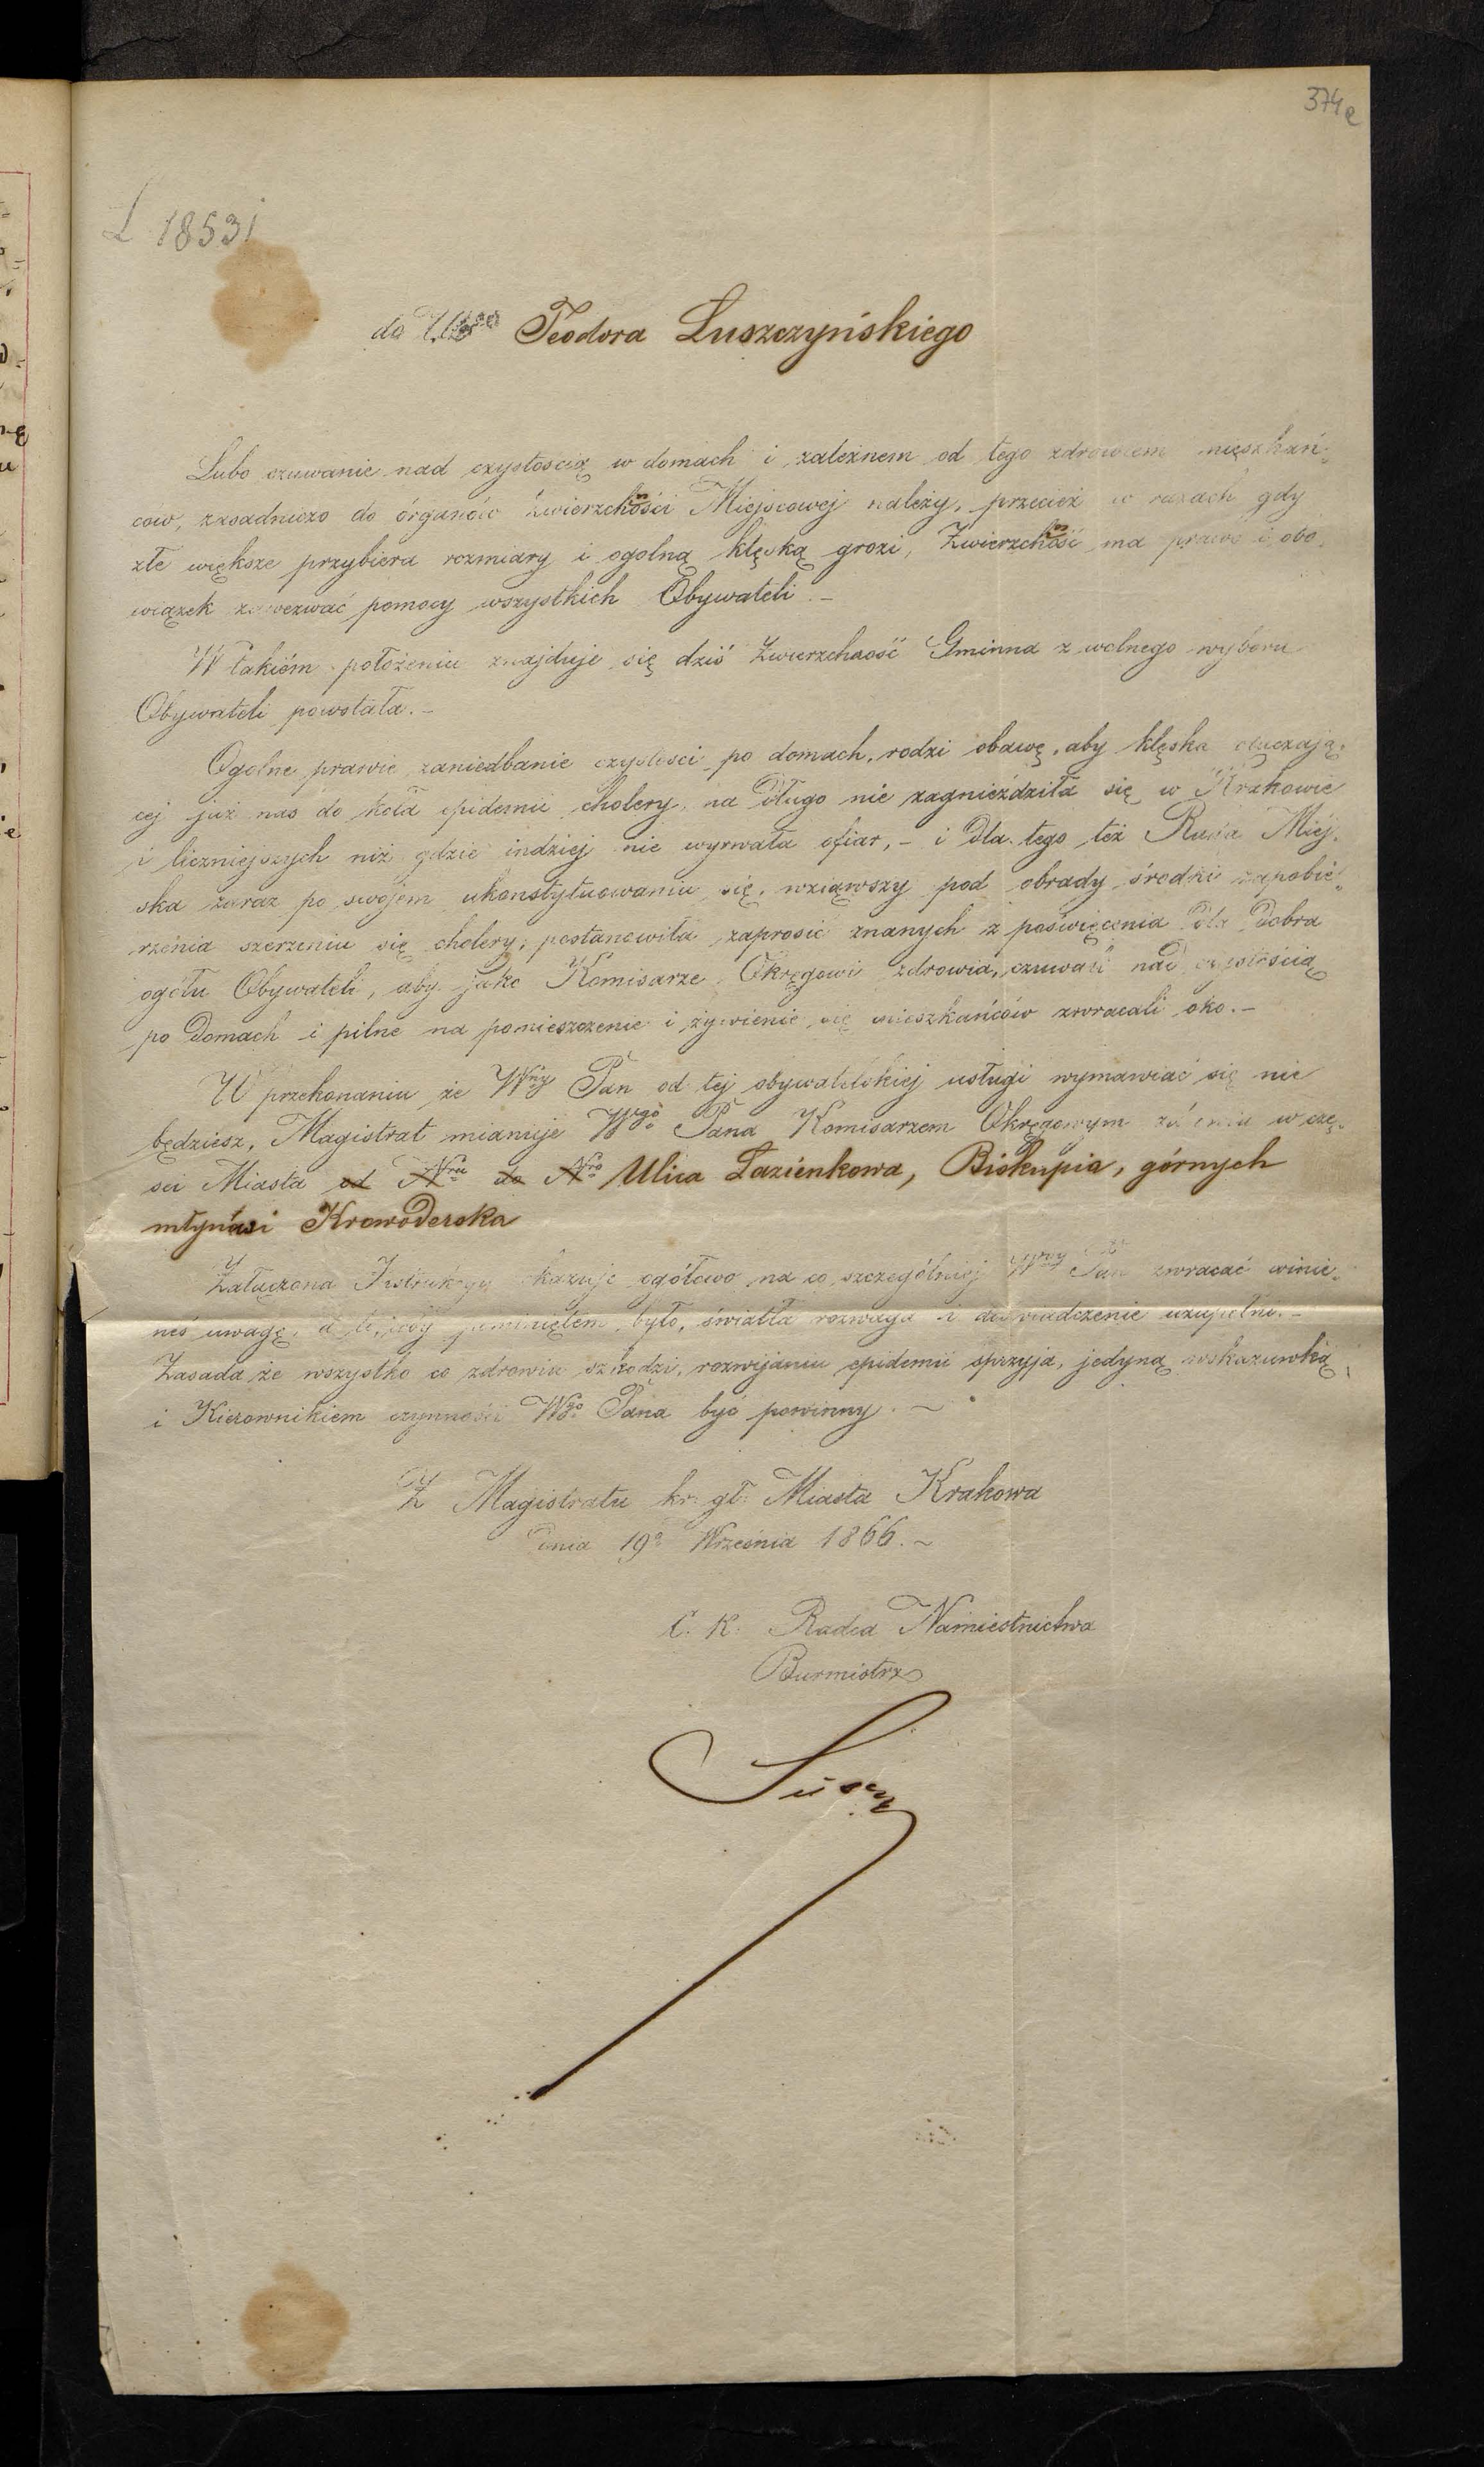 374e
L 18531
do Teodora Łuszczyńskiego
Lubo czuwanie nad czystością w domach i zależnem od tego zdrowiem mieszkań-
ców, zasadniczo do órganów Zwierzchności Miejscowej należy, przecież w razach gdy
złe większe przybiera rozmiary i ogolną klęską grozi, Zwierzchność ma prawo i obo-
wiązek zawezwać pomocy wszystkich Obywateli. –
W takiém położeniu znajduje się dziś Zwierzchność Gminna z wolnego wyboru
Obywateli powstała. –
Ogolne prawie zaniedbanie czystości po domach, rodzi obawę, aby klęska otaczają-
cej już nas do koła epidemii cholery, na długo nie zagnieździła się w Krakowie
i liczniejszych niż gdzie indziej nie wyrwała ofiar, – i dla tego też Rada Miej-
ska zaraz po swojem ukonstytuowaniu się, wziąwszy pod obrady środki zapobie-
rzenia szerzeniu się cholery, postanowiła zaprosić znanych z poświęcenia dla dobra
ogółu Obywateli, aby jako Komisarze Okręgowi zdrowia, czuwali nad czystością
po domach i pilne na pomieszczenie i żywienie się mieszkańców zwracali oko. –
W przekonaniu że Wny Pan od tej obywatelskiej usługi wymawiać się nie
będziesz, Magistrat mianuje Wgo Pana Komisarzem Okręgowym zdrowia w czę-
ści Miasta od Nru do Nro Ulica Łazienkowa, Biskupia, górnych
młynów i Krowoderska
Załączona Instrukcya wskazuje ogółowo na co szczególniej Wny Pan zwracać winie-
neś uwagę, a co pominiętem było, światła rozwaga i doświadczenie uzupełni. –
Zasada że wszystko co zdrowiu szkodzi, rozwijaniu epidemii sprzyja, jedyną wskazuwką
i Kierownikiem czynności Wgo Pana być powinny. –
Z Magistratu kr: gł: Miasta Krakowa
Dnia 19o Września 1866. –
C. K. Radca Namiestnictwa
Burmistrz